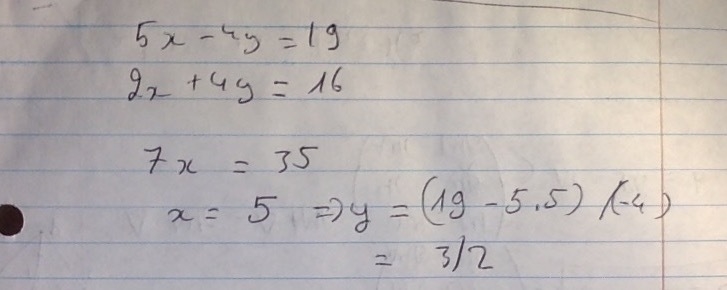 5x - 4y = 19
2x + 4y = 16
7x = 35
x = 5 => y = (19 - 5.5) /(-4)
= 3/2